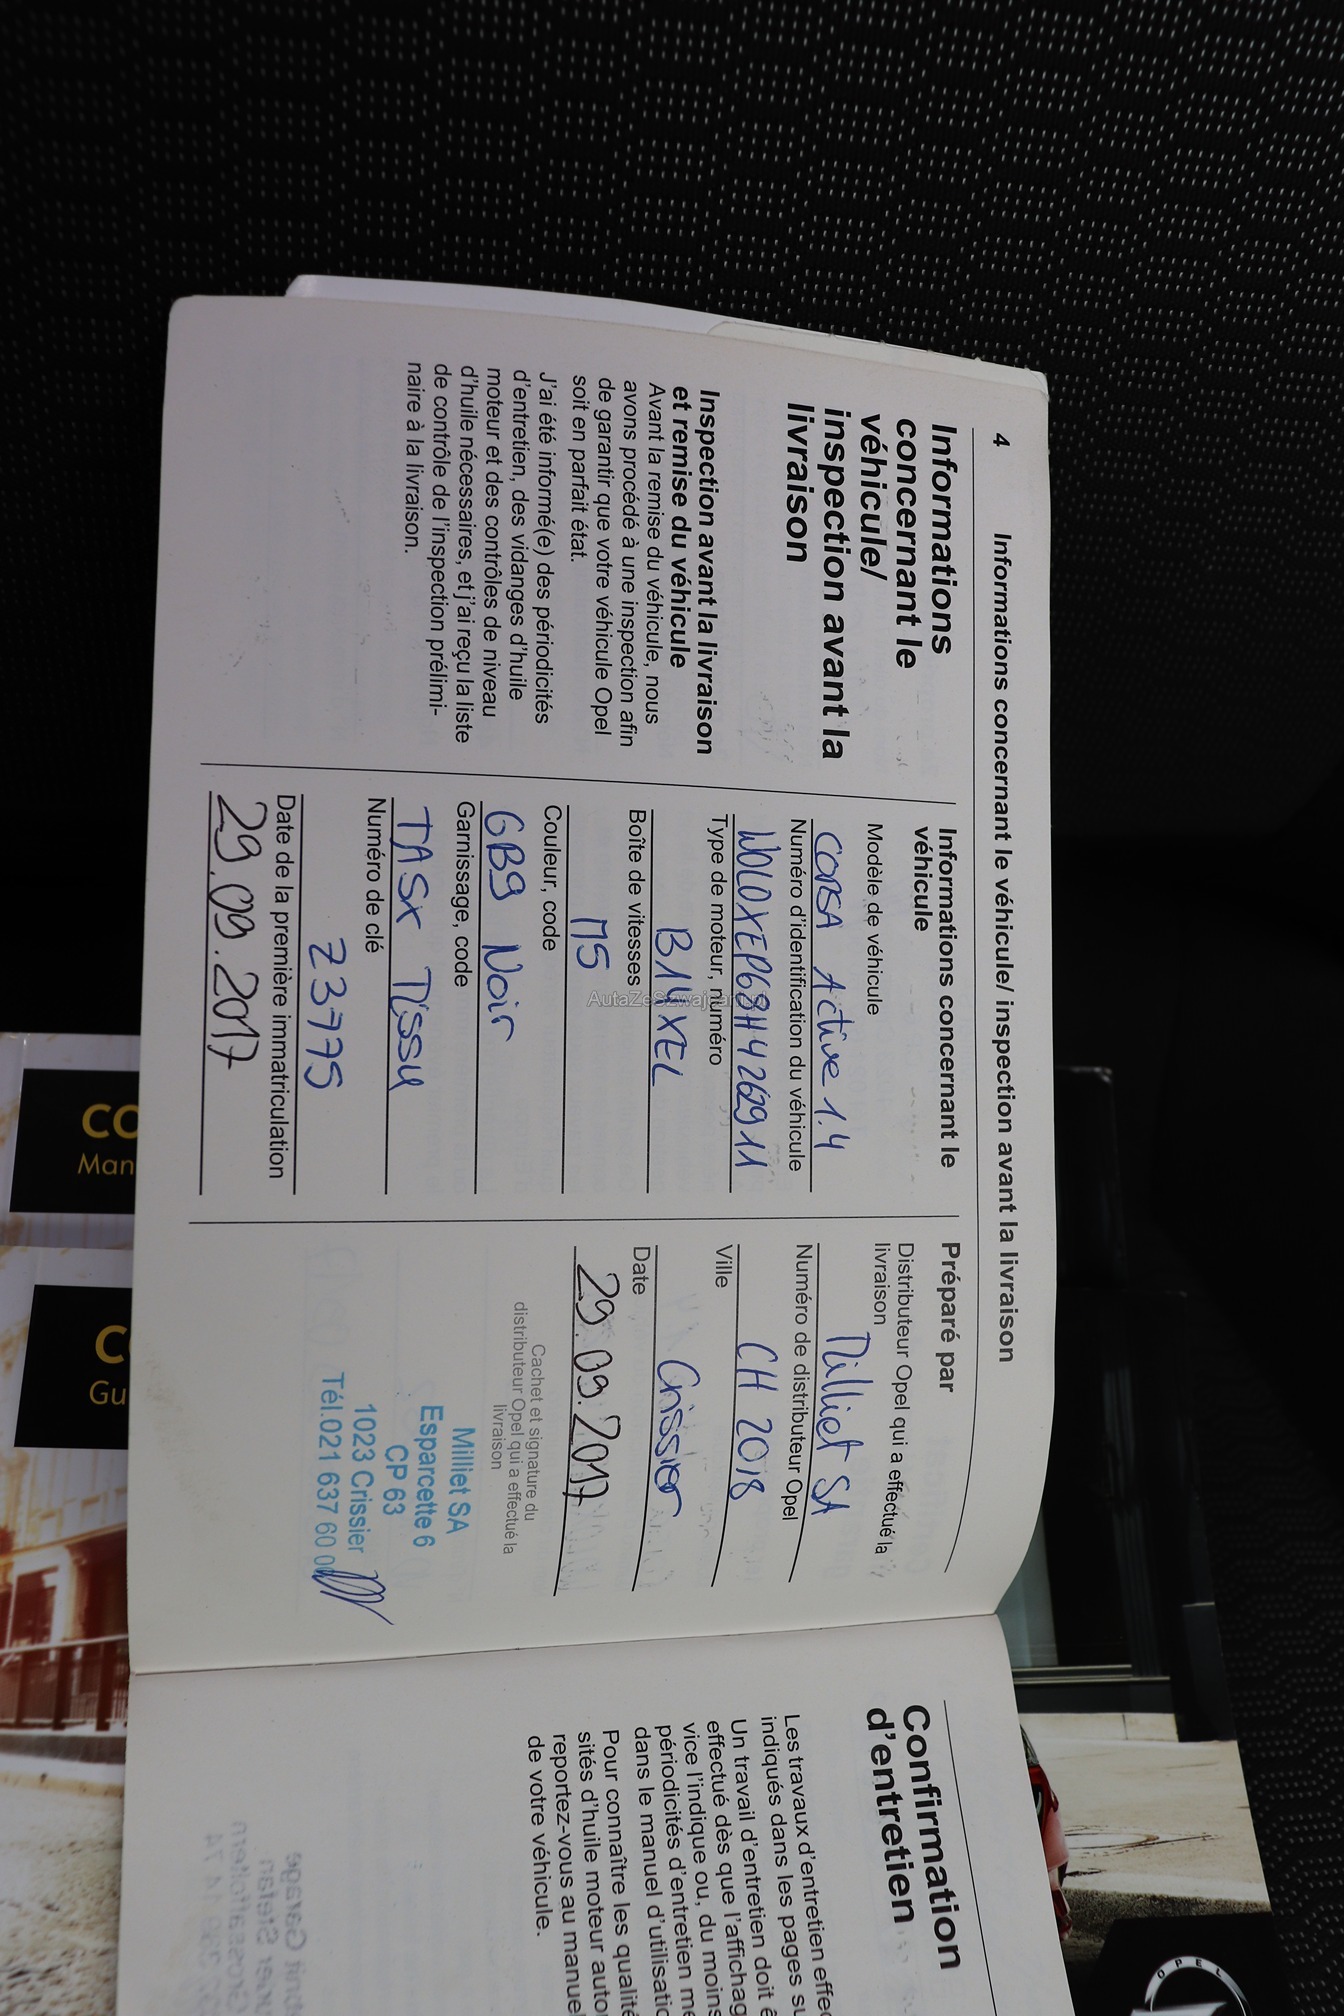 4 Informations concernant le véhicule/ inspection avant la livraison
Informations
concernant le
véhicule/
inspection avant la
livraison
Inspection avant la livraison
et remise du véhicule
Avant la remise du véhicule, nous
avons procédé à une inspection afin
de garantir que votre véhicule Opel
soit en parfait état.
J'ai été informé(e) des périodicités
d'entretien, des vidanges d'huile
moteur et des contrôles de niveau
d'huile nécessaires, et j'ai reçu la liste
de contrôle de l'inspection prélimi-
naire à la livraison.
Informations concernant le
véhicule
Modèle de véhicule
CORSA Active 1.4
Numéro d'identification du véhicule
W0L0XEP68H4262911
Type de moteur, numéro
B14XEL
Boîte de vitesses
M5
Couleur, code
GB9 Noir
Garnissage, code
TASX Tissu
Numéro de clé
Z3775
Date de la première immatriculation
29.09.2017
Préparé par
Distributeur Opel qui a effectué la
livraison
Milliet SA
Numéro de distributeur Opel
CH 2018
Ville
Crissier
Date
29.09.2017
Cachet et signature du
distributeur Opel qui a effectué la
livraison
Milliet SA
Esparcette 6
CP 63
1023 Crissier
Tél.021 637 60
Confirmation
d'entretien
Les travaux d'entretien effec
indiqués dans les pages su
Un travail d'entretien doit ê
effectué dès que l'affichag
vice l'indique ou, du moins
périodicités d'entretien me
dans le manuel d'utilisatio
Pour connaître les qualité
sités d'huile moteur autor
reportez-vous au manuel
de votre véhicule.
CO
Man
C
Gu
OPEL